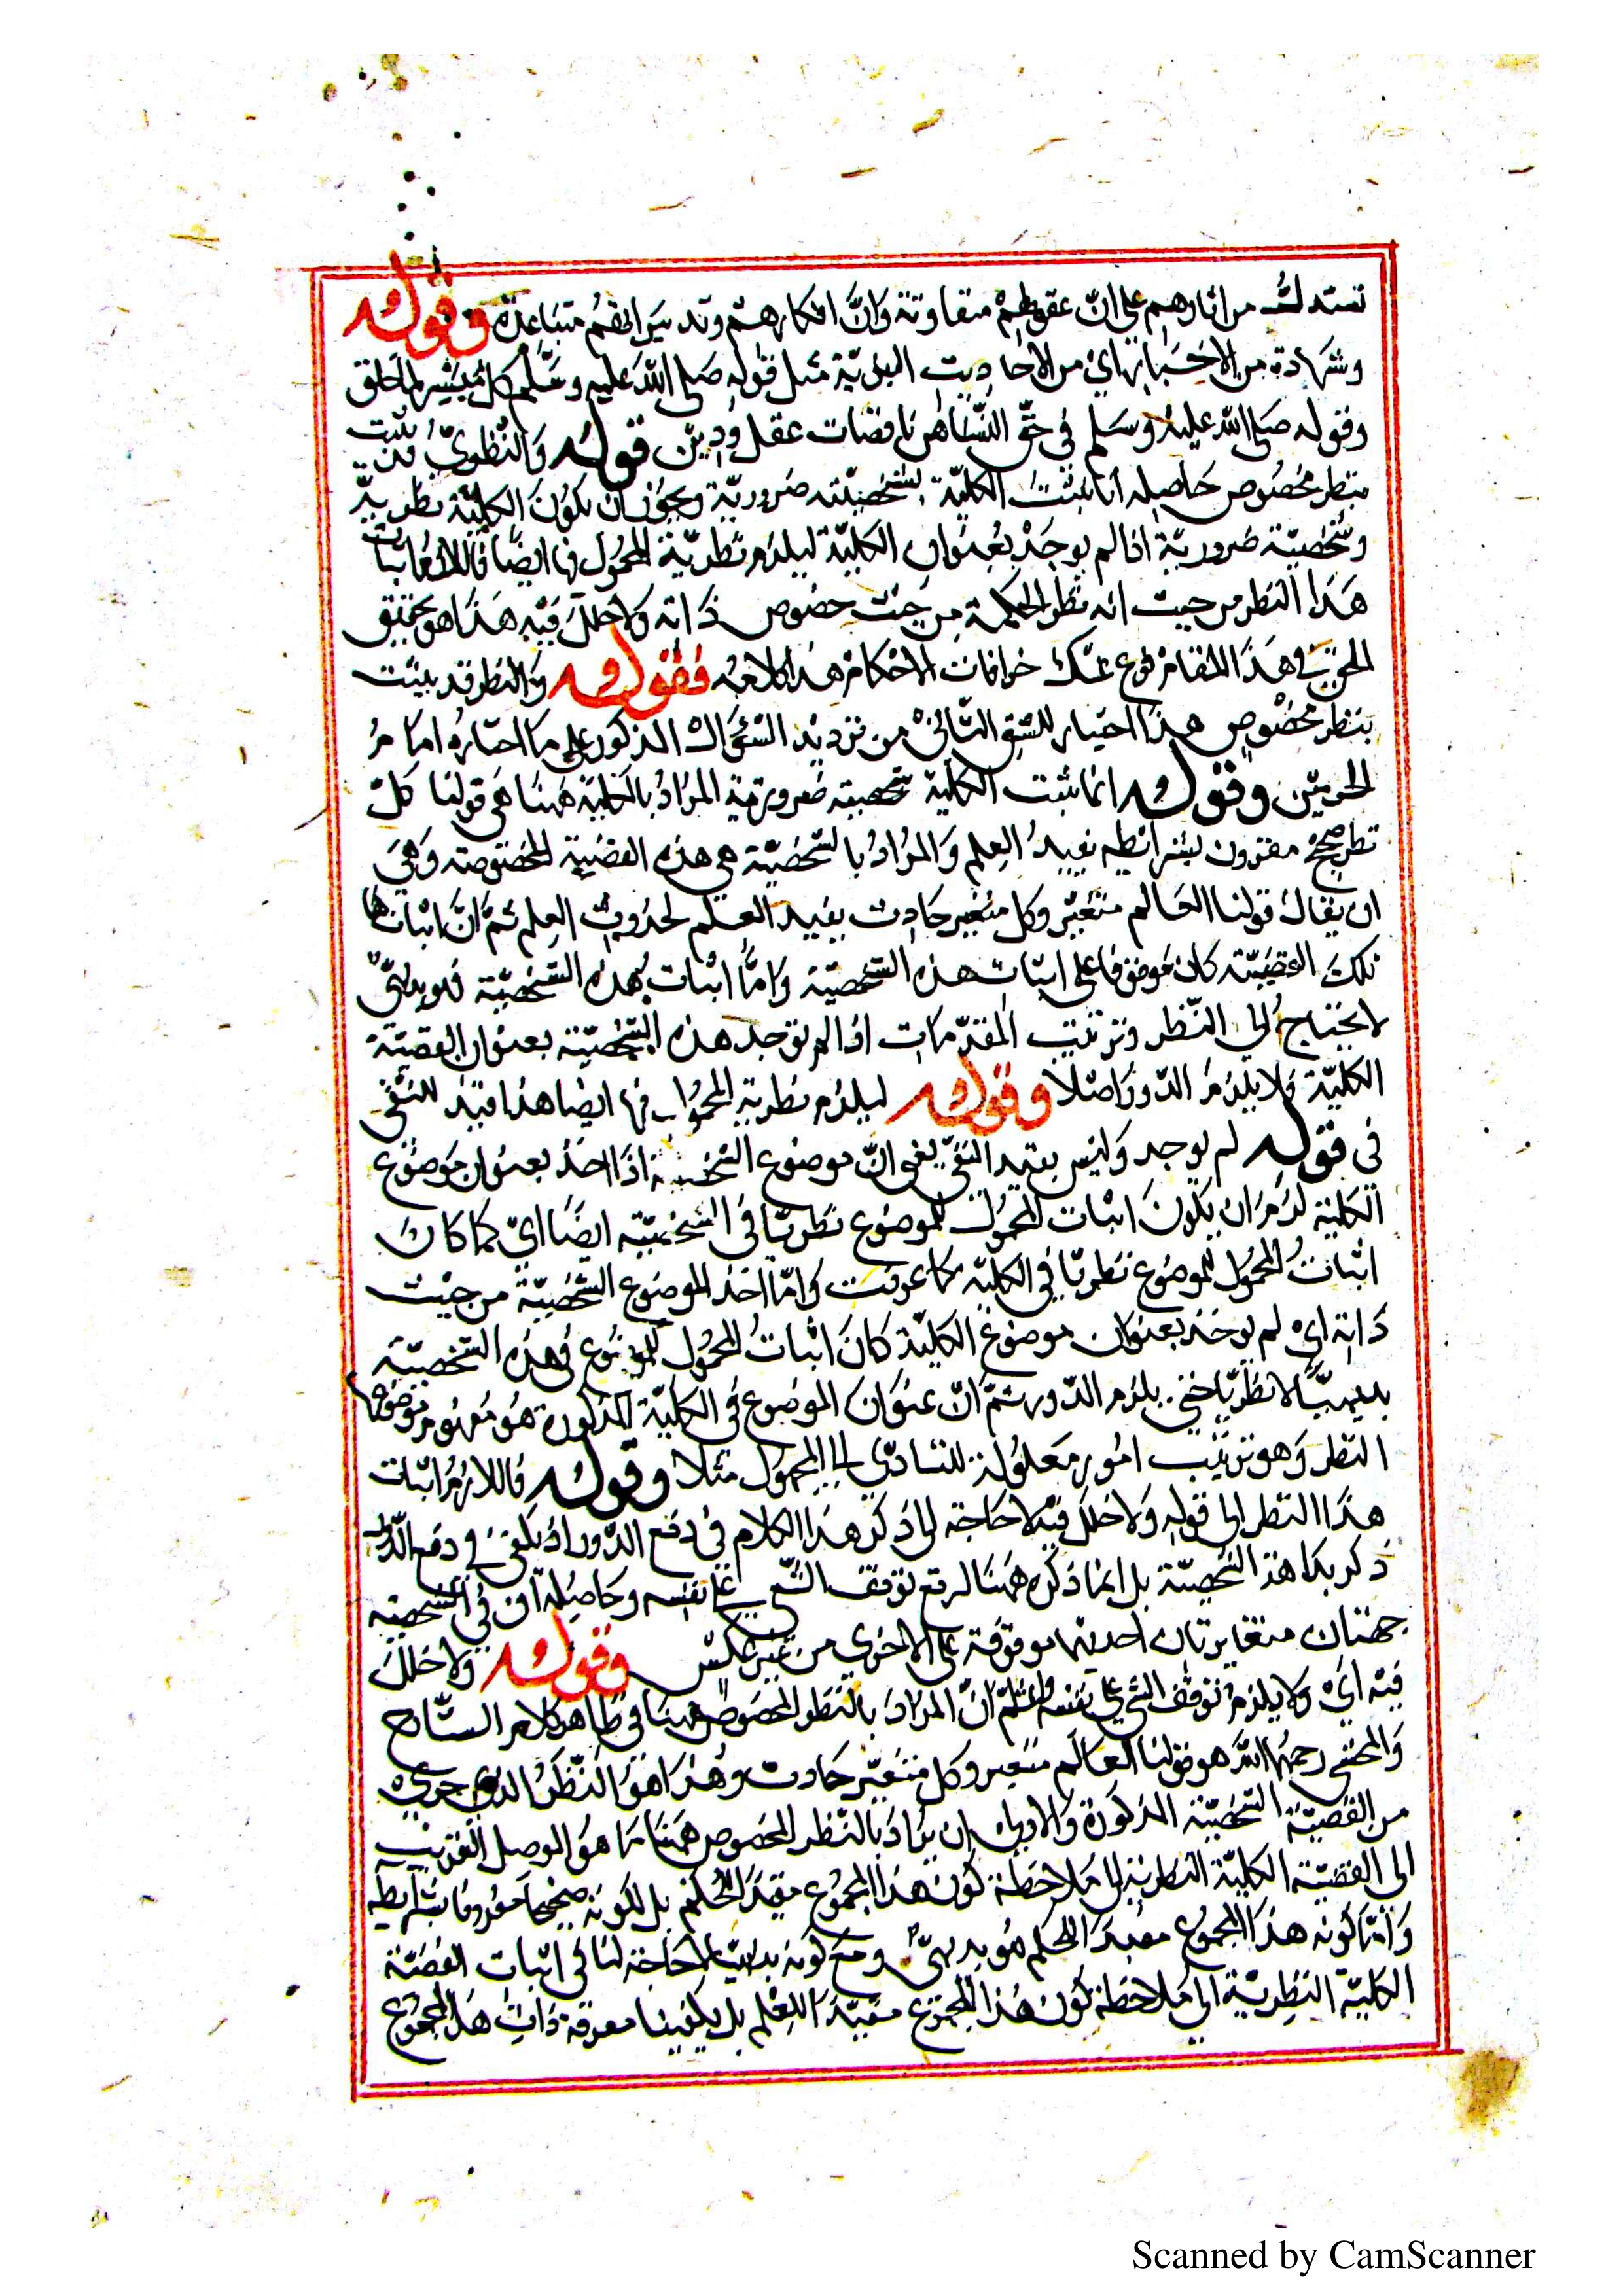 نستدل من اثارهم على انّ عقولهم متفاوتة وَانّ افكارهم وتدبيراتهم متباعدة وقوله
وشهادة من الاخبار اي من الاحاديث النبويّة مثل قوله صلى الله عليه وسلم كل ميسّر لما خلق
وقوله صلى الله عليه وسلم في حقّ النّساء هن ناقصات عقل ودين قوله وَالنّظريّ قد يثبت
بنظر مخصوص حاصله انا نثبت الكليّة بشخصيّته ضروريّة ويجوز ان تكون الكليّة نظريّة
وشخصيّة ضروريّة اذا لم يوجد بعنوان الكليّة ليلزم نظريّة المحمول فيها ايضًا فاللازم اثبات
هذا النظر من حيث انه نظر للحكمة من حيث خصوص ذاته ولا خلل فيه هذا هو تحقيق
الحق في هذا المقام فدع عنك خرافات الاحكام هذا كلامه فقوله وَالنظر قد يثبت
بنظر مخصوص هذا اختيار للشق الثاني من ترديد السؤال المذكور على ما اختاره امام
الحرمين وقوله انما نثبت الكلية بشخصية ضرورية المراد بالكلية ههنا هي قولنا كلّ
نظر صحيح مقرون بشرائطه يفيد العلم وَالمراد بالشخصيّة هي هذه القضيّة المخصوصة وَهي
ان يقال قولنا العالم متغيّر وكل متغير حادث يفيد العلم لحدوث العلم ثمّ انّ اثباتها
تلك القضيّة كان موقوفا على اثبات هذه الشخصيّة وَامّا اثبات هذه الشخصيّة فبديهيّ
لا يحتاج الى النّظر وترتيب المقدّمات اذا لم توجد هذه الشخصيّة بعنوان القضيّة
الكليّة فلا يلزم الدّور اصلًا وقوله ليلزم نظرية المحمول فيها ايضا هذا قيد للنفي
في قوله لم يوجد وليس بقيد النفي يعني انّ موضوع الشخصية اذا اخذ بعنوان موضوع
الكلية لزم ان يكون اثبات المحمول للموضوع نظريّا في الشخصيّة ايضًا اي كما كان
اثبات المحمول للموضوع نظريّا في الكليّة كما عرفت وَامّا اخذ الموضوع الشخصيّة من حيث
ذاته اي لم يوخذ بعنوان موضوع الكليّة كان اثبات المحمول للموضوع في هذه الشخصيّة
بديهيًّا لا نظريّا حتى يلزم الدّور ثمّ انّ عنوان الموضوع في الكليّة المذكورة هو مفهوم موضوعها
النظر وَهو ترتيب امور معلومة للتادّي الى المجهول مثلا وقوله فاللازم اثبات
هذا النظر الى قوله وَلا خلل فيه لا حاجة الى ذكر هذا الكلام في دفع الدّور اذ يكفي في دفع الدّور
ذكر بداهة الشخصيّة بل انما ذكره ههنا لرفع توقف الشيء على نفسه وحاصله ان في الشخصية
جهتان متغايرتان احديهما موقوفة على الاخرى من غير عكس وقوله وَلا خلل
فيه اي وَلا يلزم توقف الشيء على نفسه واعلم انّ المراد بالنظر المخصوص ههنا في ظاهر كلام الشّارح
وَالمحشي رحمهما الله هو قولنا العالم متغير وكل متغيّر حادث وهذا هو النّظر الذي جرى
من القضيّة الشخصيّة المذكورة وَالاولى ان يراد بالنّظر المخصوص ههنا ما هو الموصل القريب
الى القضيّة الكليّة النظرية الى ملاحظة كون هذا المجموع مفيدًا للعلم بل لكونه صحيحا مقرونا بشرايطه
وَامّا كونه هذا المجموع مفيدًا للحكم هو بديهيّ ومع كونه بديهيّا لا حاجة لنا في اثبات القضيّة
الكليّة النظريّة الى ملاحظة كون هذا المجموع مفيدًا للعلم بل يكفينا معرفة ذات هذا المجموع
Scanned by CamScanner